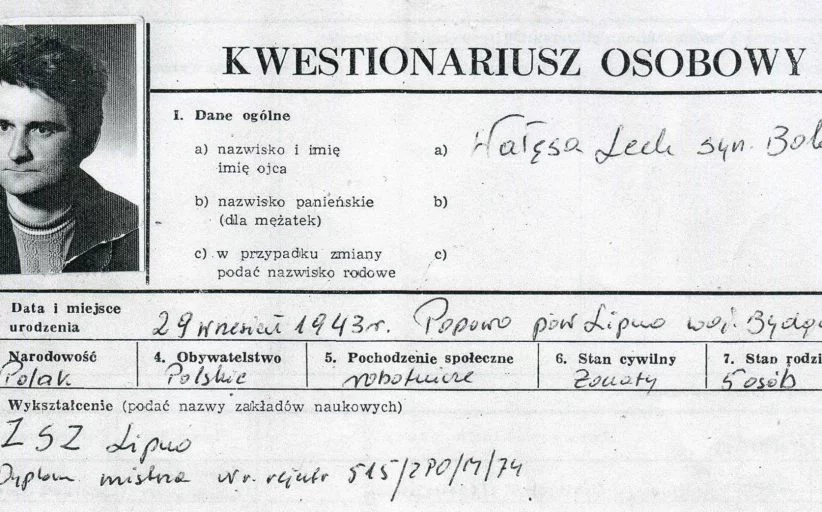 KWESTIONARIUSZ OSOBOWY
I. Dane ogólne
a) nazwisko i imię
imię ojca
a) Wałęsa Lech syn. Bol
b) nazwisko panieńskie
(dla mężatek)
b)
c) w przypadku zmiany
podać nazwisko rodowe
c)
Data i miejsce
urodzenia
29 wrzesień 1943 r. Popowo pow Lipno woj. Bydg
Narodowość
Polak
4. Obywatelstwo
Polskie
5. Pochodzenie społeczne
robotnicze
6. Stan cywilny
Żonaty
7. Stan rodzi
5 osób
Wykształcenie (podać nazwy zakładów naukowych)
ZSZ Lipno
Dyplom mistrza nr. rejestr 515/ZPO/M/74